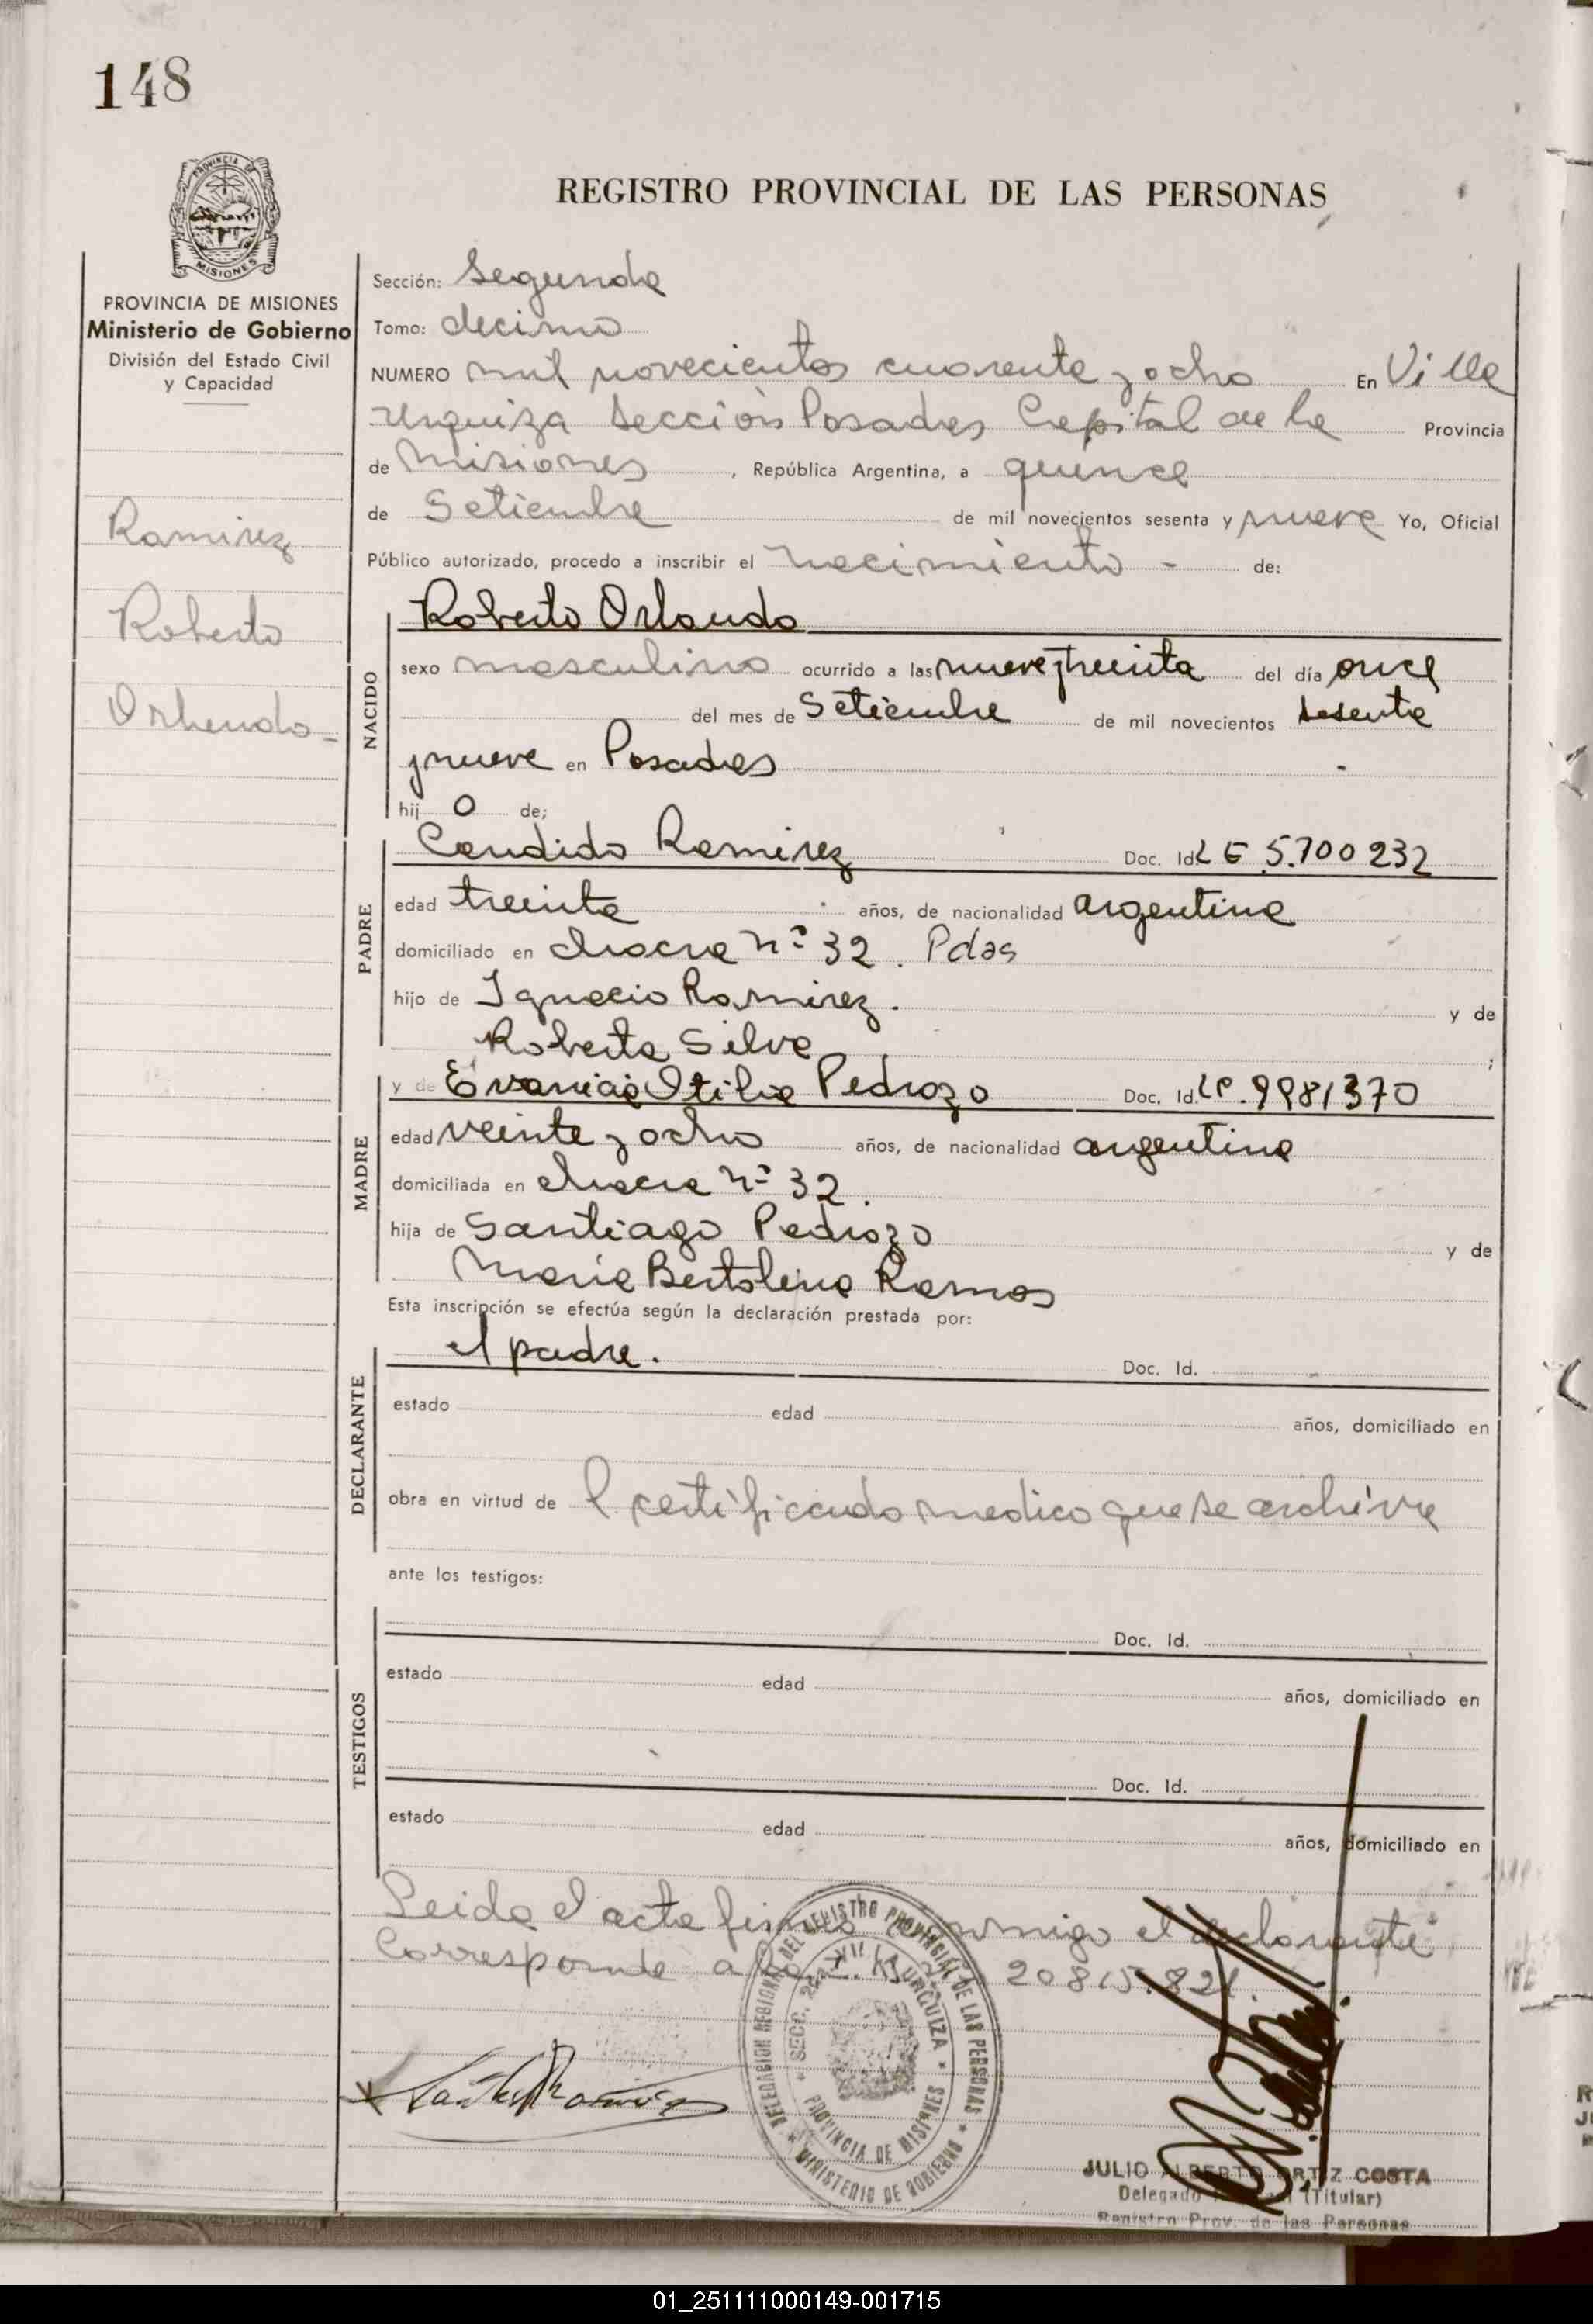 148
REGISTRO PROVINCIAL DE LAS PERSONAS
PROVINCIA DE
MISIONES
PROVINCIA DE MISIONES
Ministerio de Gobierno
División del Estado Civil
y Capacidad
Ramirez
Roberto
Orlando -
Sección: Segunda
Tomo: decimo
NUMERO mil novecientos cuarenta y ocho En Villa
Urquiza Sección Posadas Capital de la Provincia
de Misiones, República Argentina, a quince
de Setiembre de mil novecientos sesenta y nueve Yo, Oficial
Público autorizado, procedo a inscribir el nacimiento - de:
NACIDO
Roberto Orlando
sexo masculino ocurrido a las nueve y treinta del día once
del mes de Setiembre de mil novecientos sesenta
y nueve en Posadas
hij o de;
PADRE
Candido Ramirez Doc. Id. L E 5.700232
edad treinta años, de nacionalidad argentina
domiciliado en chacra nº 32. Pdas
hijo de Ignacio Ramirez. y de
Roberta Silva ;
MADRE
y de Otilia Pedrozo Doc. Id. 9981370
edad veinte y ocho años, de nacionalidad argentina
domiciliada en chacra nº 32.
hija de Santiago Pedrozo y de
Maria Bertolina Ramos
Esta inscripción se efectúa según la declaración prestada por:
DECLARANTE
el padre. Doc. Id.
estado edad años, domiciliado en
obra en virtud de l certificado medico que se archiva
ante los testigos:
TESTIGOS
Doc. Id.
estado edad años, domiciliado en
Doc. Id.
estado edad años, domiciliado en
Leida el acta firma conmigo el declarante
Corresponde a 20815.821.
DELEGACION REGIONAL DEL REGISTRO PROVINCIAL DE LAS PERSONAS
* MINISTERIO DE GOBIERNO *
* SECC. 2da. VILLA URQUIZA *
PROVINCIA DE MISIONES
JULIO ALBERTO ORTIZ COSTA
Delegado (Titular)
Registro Prov. de las Personas
01_251111000149-001715